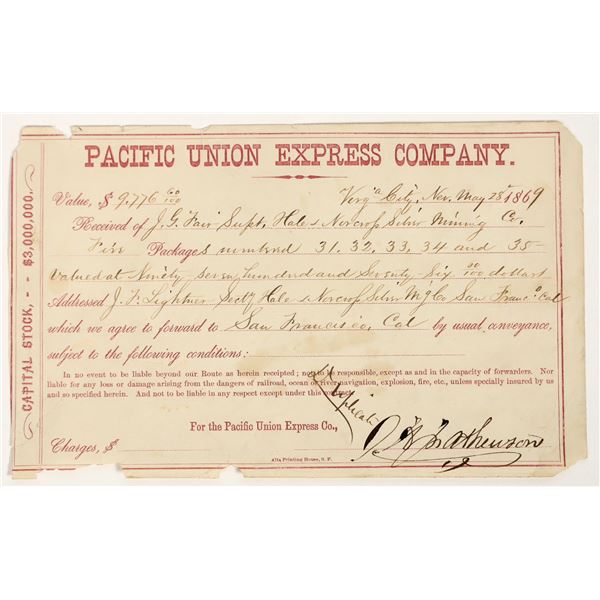 PACIFIC UNION EXPRESS COMPANY.
CAPITAL STOCK, - - $3,000,000.
Value, $ 9,776 60/100 Virg'a City, Nev, May 28 1869
Received of J. G. Fair Supt. Hale & Norcross Silver Mining Co.
Five Packages numbered 31, 32, 33, 34 and 35
Valued at Ninety seven hundred and Seventy Six 60/100 dollars
Addressed J. F. Lightner Secty Hale & Norcross Silver M'g Co San Franco Cal
which we agree to forward to San Francisco, Cal by usual conveyance,
subject to the following conditions:
In no event to be liable beyond our Route as herein receipted; nor to be responsible, except as and in the capacity of forwarders. Nor
liable for any loss or damage arising from the dangers of railroad, ocean or river navigation, explosion, fire, etc., unless specially insured by us
and so specified herein. And not to be liable in any respect except under this
Duplicate
For the Pacific Union Express Co.,
Mathewson
Charges, $
Alta Printing House, S. F.